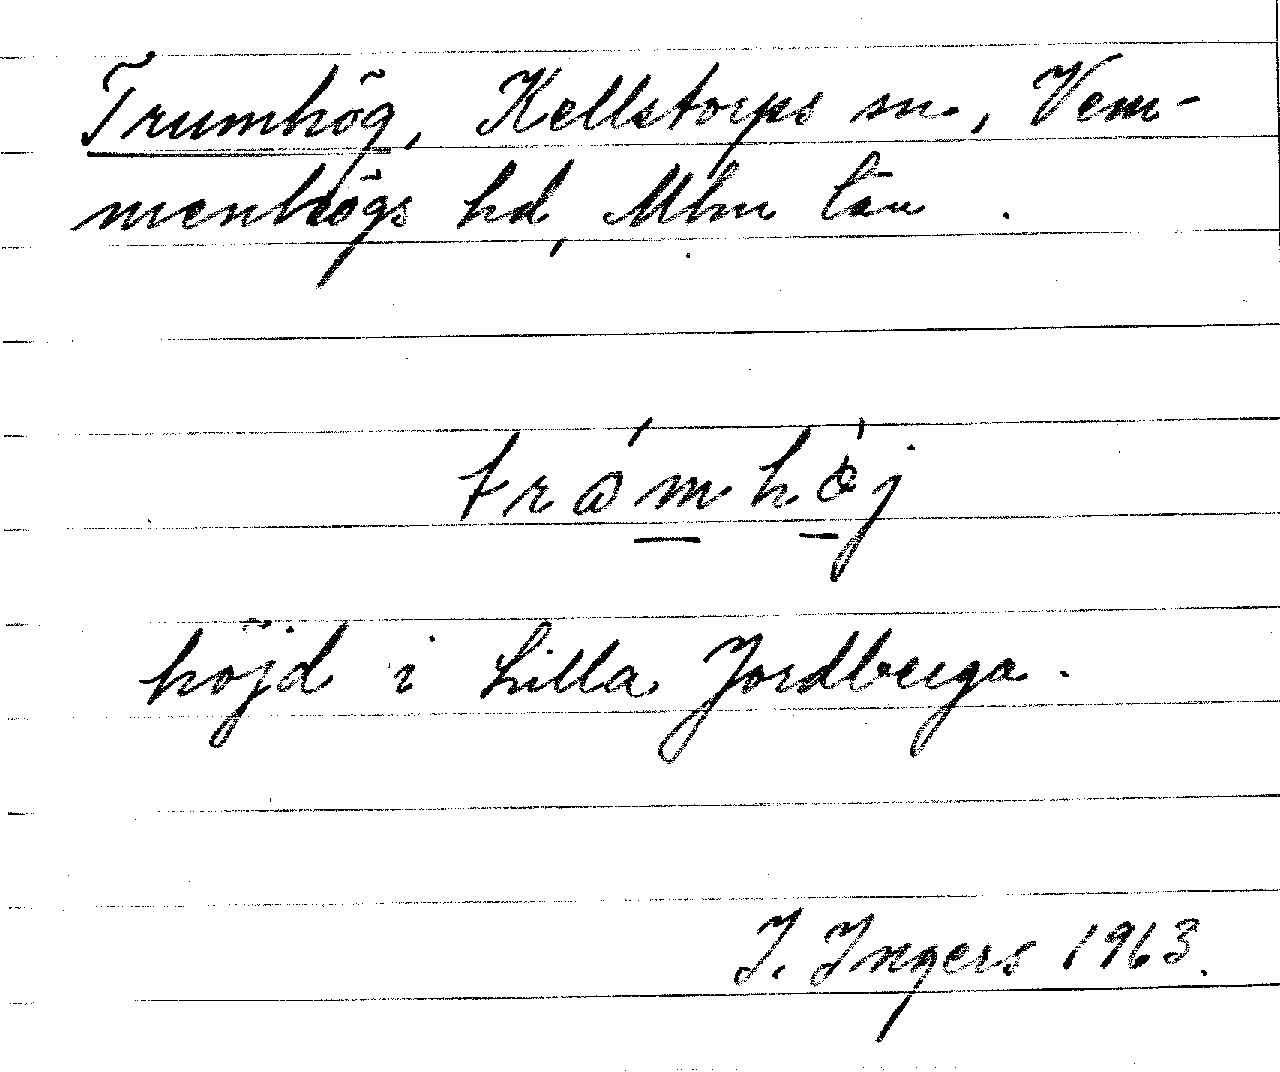 Trumhög, Kellstorps sn, Vem-
menhögs hd, Mlm län.
tråmhöj
höjd i Lilla Jordberga.
I. Ingers 1963.